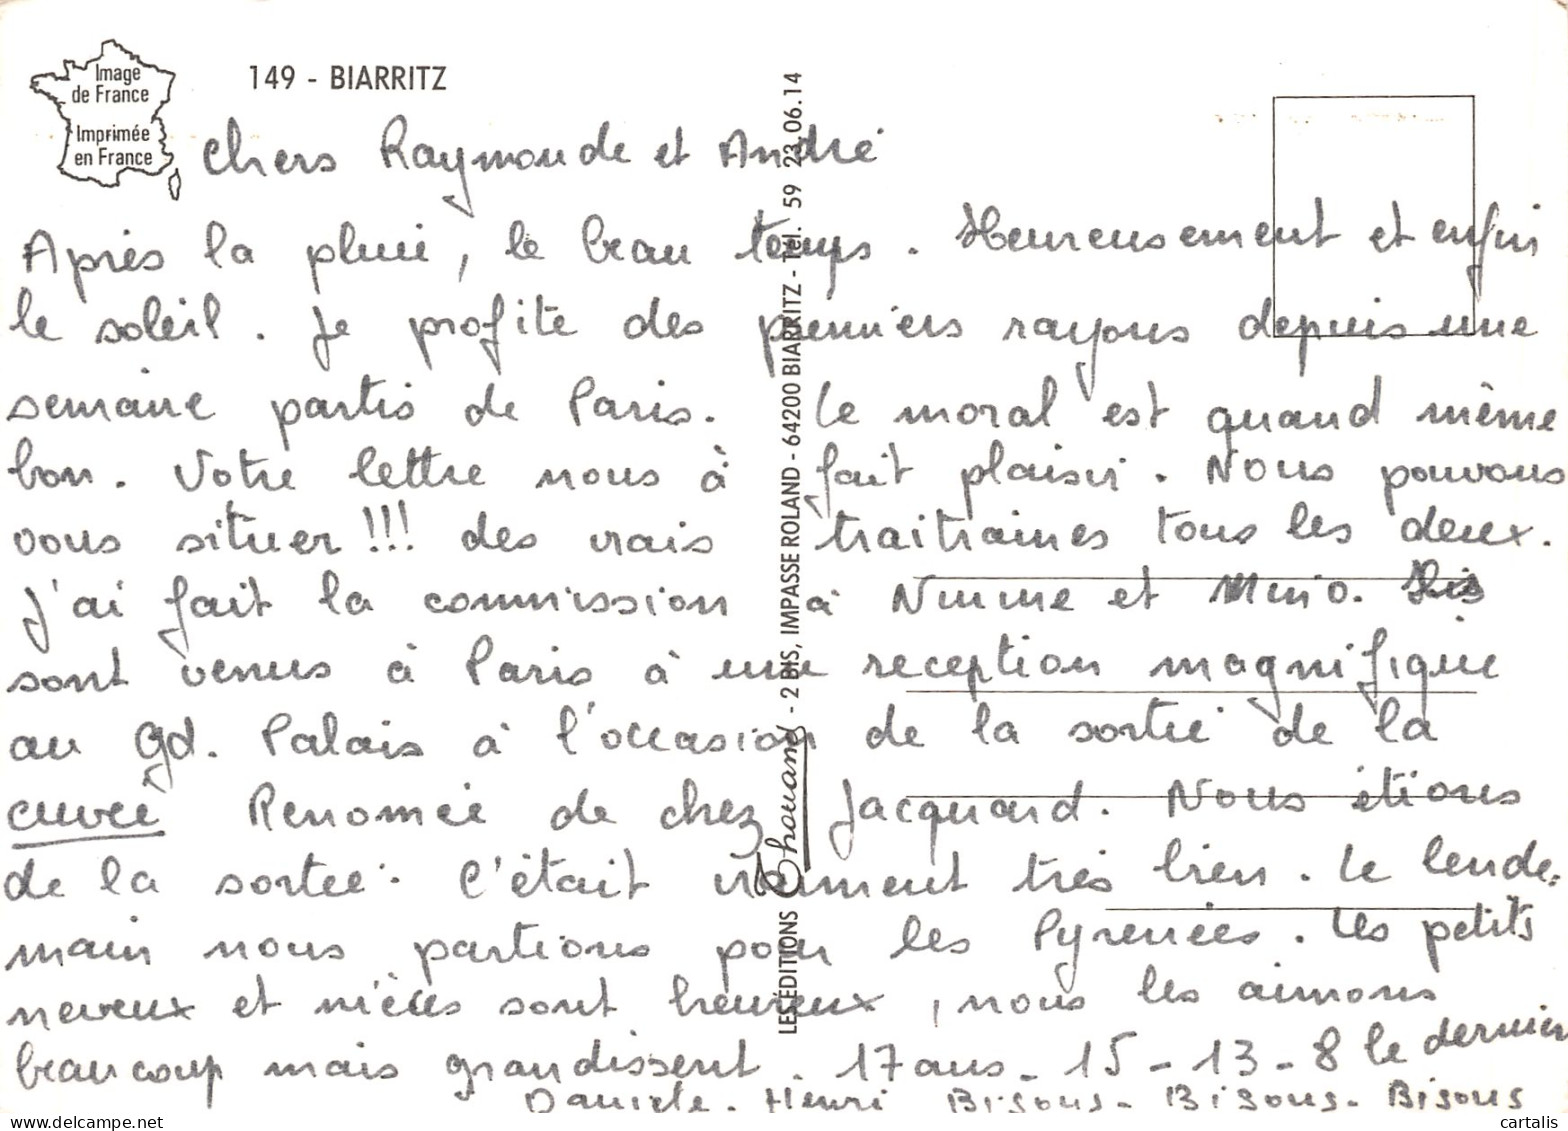 Image
de France
Imprimée
en France
149 - BIARRITZ
LES ÉDITIONS Thouand - 2 BIS, IMPASSE ROLAND - 64200 BIARRITZ - Tél. 59 23.06.14
Chers Raymonde et André
Après la pluie, le beau temps. Heureusement et enfin
le soleil. Je profite des premiers rayons depuis une
semaine partis de Paris. Le moral est quand même
bon. Votre lettre nous à fait plaisir. Nous pouvons
vous situer!!! des vrais traitraines tous les deux.
J'ai fait la commission à et
sont venus à Paris à une reception magnifique
au gd. Palais à l'occasion de la sortie de la
cuvée Renomée de chez Jacquard. Nous étions
de la sortee. C'était vraiment très bien. Le lende-
main nous partions pour les Pyrenées. Les petits
neveux et nièces sont heureux, nous les aimons
beaucoup mais grandissent. 17 ans - 15 - 13 - 8 le dernier
Daniele - Henri Bisous - Bisous - Bisous
cartalis